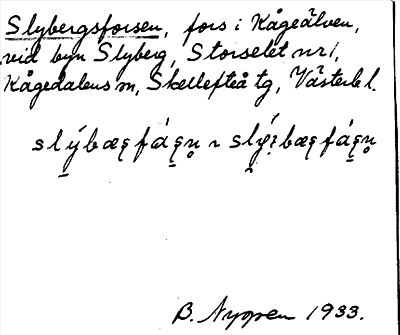 Slybergsforsen, fors i Kågeälven,
vid byn Slyberg, Storselet nr 1,
Kågedalens sn, Skellefteå tg, Västerb l.
B. Nygren 1933.